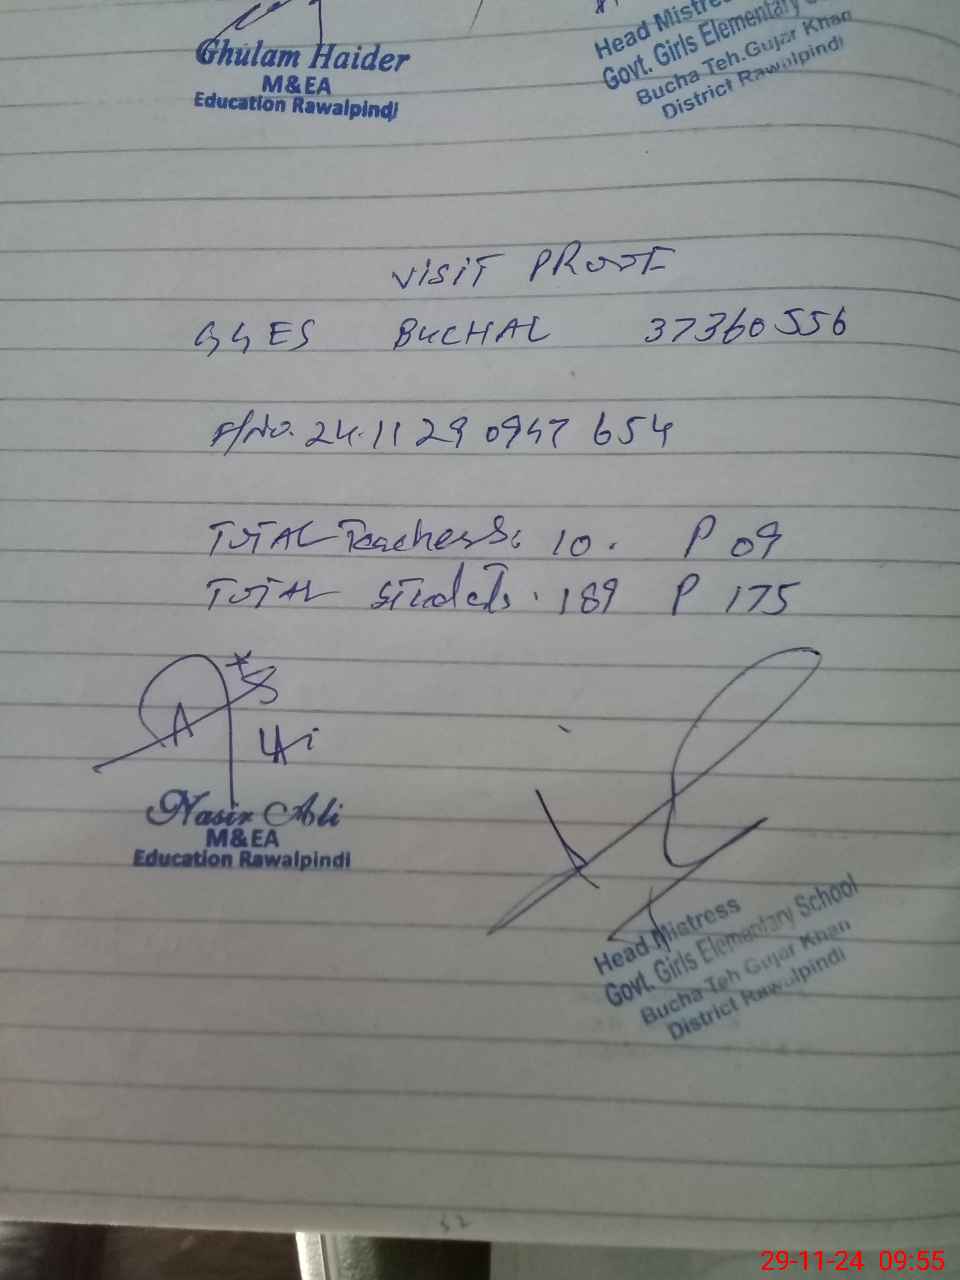 Ghulam Haider
M&EA
Education Rawalpindi
Head Mistress
Govt. Girls Elementary
Bucha Teh. Gujar Khan
District Rawalpindi
VISIT PROOF
GGES BUCHAL 37360556
24.11 29 0947 654
TOTAL Teachers: 10. P 09
TOTAL Students. 189 P 175
Nasir Ali
M&EA
Education Rawalpindi
Head Mistress
Govt. Girls Elementary School
Bucha Teh Gujar Khan
District Rawalpindi
29-11-24 09:55